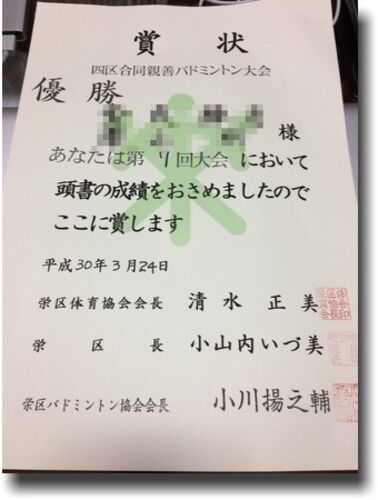 賞状
四区合同親善バドミントン大会
優勝
様
あなたは第7回大会において
頭書の成績をおさめましたので
ここに賞します
平成30年3月24日
栄区体育協会会長 清水正美
栄区長 小山内いづ美
栄区バドミントン協会会長 小川揚之輔